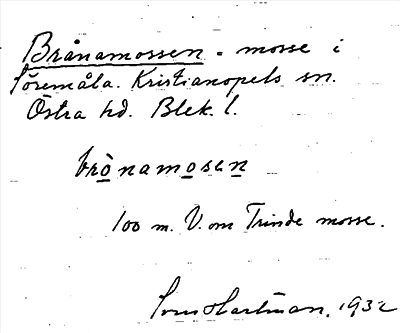 Brånamossen - mosse i
Söremåla. Kristianopels sn.
Östra hd. Blek. l.
brònamosen
100 m. V. om Trinde mosse.
Hartman. 1932